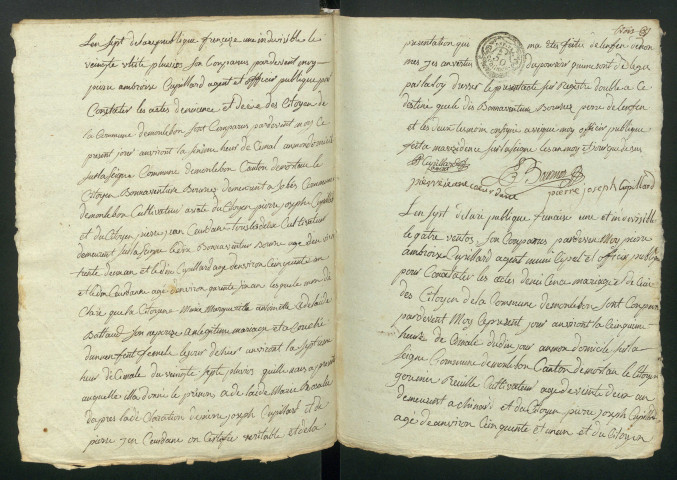 L'en sept de la republique françoise une indivisible le
vingte huite pluvios son Comparus pardevent moy
pierre ambroise Cupillard agent et officier publique pour
Constater les actes de naicence et decès des Citoyen de
la Commune de monlebon sont Comparus pardevent moy Ce
present jour anviront la sixieme heur de Cenal
sur la seigne Commune de monlebon Canton de mortau le
Citoyen Bonnaventure Bournez demeurant a Sobey Commune
de monlebon Cultivateur assisté du Citoyen pierre joseph Cupillard
et du Citoyen pierre jean Cuerdane tous la deux Cultivateur
demeurent sur la seigne ledit Bonaventur Bournez age denviron
trente deux an et ledit Cupillard age denviron Cinquante an
et ledit Courdanne age denviron quarante six an les quele mon de
Claré que la Citoyene Marie Margueritte antoinette adelaide
Battaud son nepouze an legitime mariage et acouché
dun anfent femele le jour dehier anviront la sept ieme
heur de Cenale du vingte sept pluvios quelle nais a presenté
auquelle il a donné le prenons adelaide Marie Rosalie
dapres la de Claration de pierre joseph Cupillard et de
pierre jean Courdane on Certifiée veritable et de la
presentation qui ma eté feitte de lenfen denon
mes jen an vertu du pouvoir qui me sont de lega
par la loy dresser le present acte sur Registre double a Ce
destine quele dis Bonaventure Bournez pere de lenfen
et les deux temoin onsigné avec que moy officier publique
feit a ma residence sur la seigne les an moy et jour que dessus
PA Cupillard agent
B Bournez
pierre jean cuerdane pierre joseph Cupillard
L'en sept de la republique francaise une et indivisible
le qatre ventos son Comparus pardevent Moy pierre
ambroise Cupillard agent municipal et officier publique
pour Constater les actes de naicence mariage et de Ceis
des Citoyen de la Commune de monlebon sont Comparus
pardevent Moy Ce present jour anviront la Cinquieme
heure de Cenale dudit jour an mon domicile sur la
seigne Commune de monlebon Canton de mortau le Citoyen
Cultivateur age de veinte deux an
demeurant a chinard et du Citoyen piere joseph Cupillard
age denviron Cinquente et un an et du Citoyen